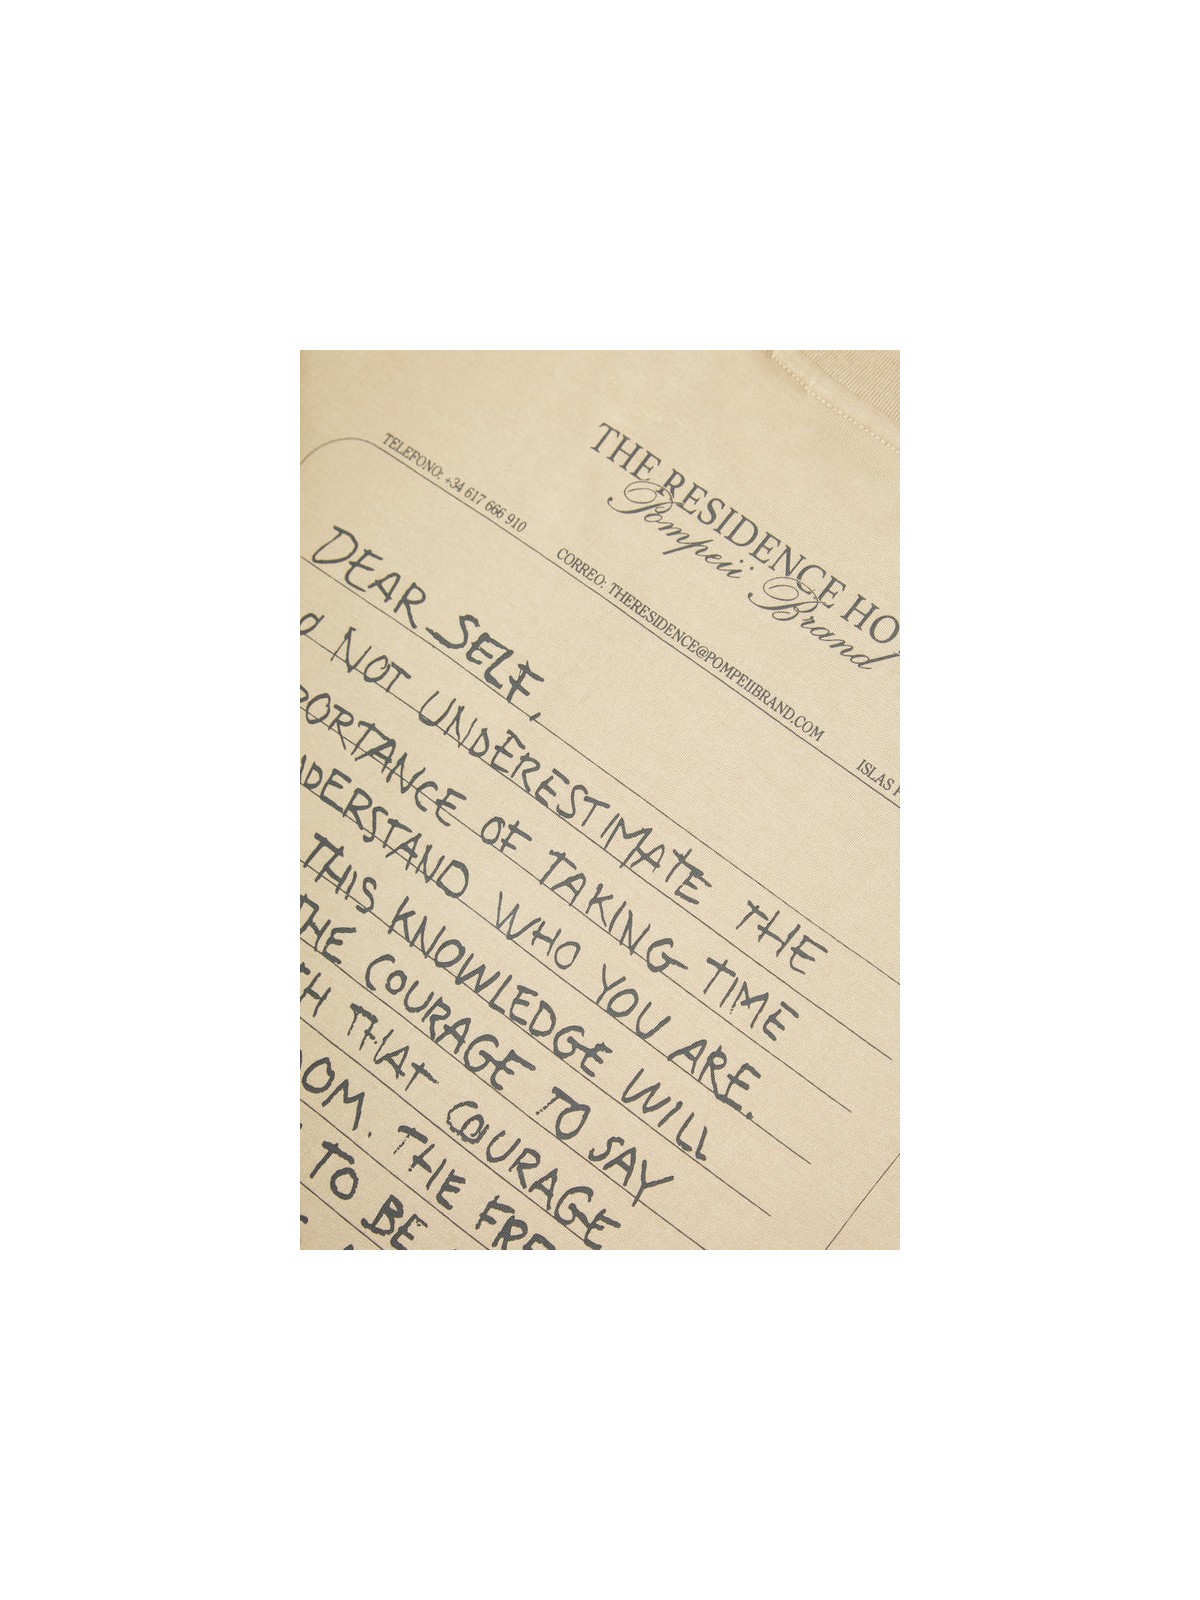 THE RESIDENCE HO
Pompeii Brand
TELEFONO: +34 617 666 910
CORREO: THERESIDENCE@POMPEIIBRAND.COM
ISLAS
DEAR SELF,
NOT UNDERESTIMATE THE
PORTANCE OF TAKING TIME
DERSTAND WHO YOU ARE.
THIS KNOWLEDGE WILL
THE COURAGE TO SAY
TH THAT COURAGE
OM. THE FRE
TO BE